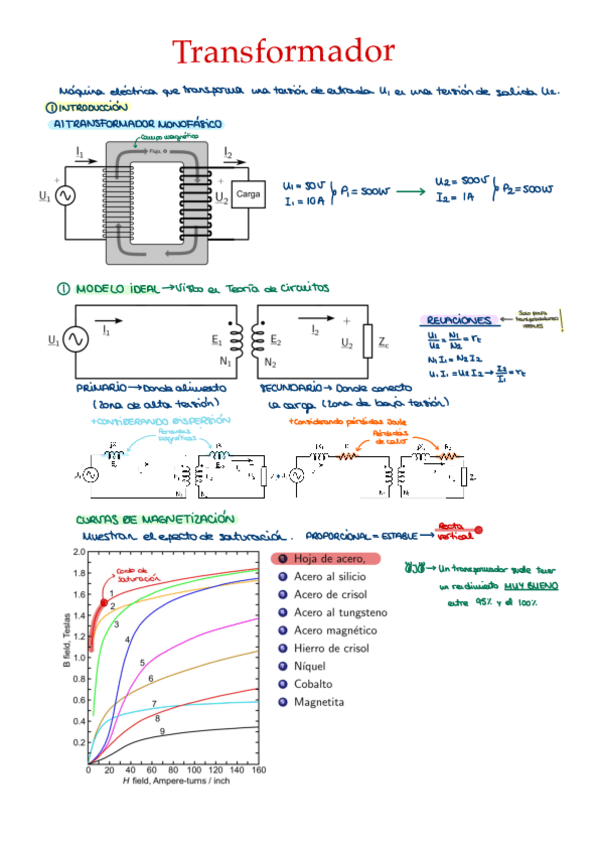 Transformador
Máquina eléctrica que transforma una tensión de entrada U₁ en una tensión de salida U₂.
① INTRODUCCIÓN
A) TRANSFORMADOR MONOFÁSICO
Campo magnético
I₁
Flujo, Φ
I₂
+
+
U₁
U₂
Carga
U₁ = 50V
I₁ = 10A
P₁ = 500W
U₂ = 500V
I₂ = 1A
P₂ = 500W
① MODELO IDEAL → Visto en Teoría de Circuitos
I₁
I₂
+
U₁
E₁
E₂
U₂
Zc
N₁
N₂
RELACIONES
Solo para transformadores ideales
!
U₁/U₂ = N₁/N₂ = rt
N₁I₁ = N₂I₂
U₁I₁ = U₂I₂ → I₂/I₁ = rt
PRIMARIO → Donde alimento
(zona de alta tensión)
SECUNDARIO → Donde conecto
la carga (zona de baja tensión)
+ CONSIDERANDO DISPERSIÓN
Pérdidas magnéticas
+ Considerando pérdidas Joule
Pérdidas de calor
CURVAS DE MAGNETIZACIÓN
Muestran el efecto de saturación. PROPORCIONAL = ESTABLE → Recta vertical
Codo de saturación
B field, Teslas
2.0
1.8
1.6
1.4
1.2
1.0
0.8
0.6
0.4
0.2
1
2
3
4
5
6
7
8
9
0 20 40 60 80 100 120 140 160
H field, Ampere-turns / inch
1 Hoja de acero,
2 Acero al silicio
3 Acero de crisol
4 Acero al tungsteno
5 Acero magnético
6 Hierro de crisol
7 Níquel
8 Cobalto
9 Magnetita
→ Un transformador suele tener
un rendimiento MUY BUENO
entre 95% y el 100%